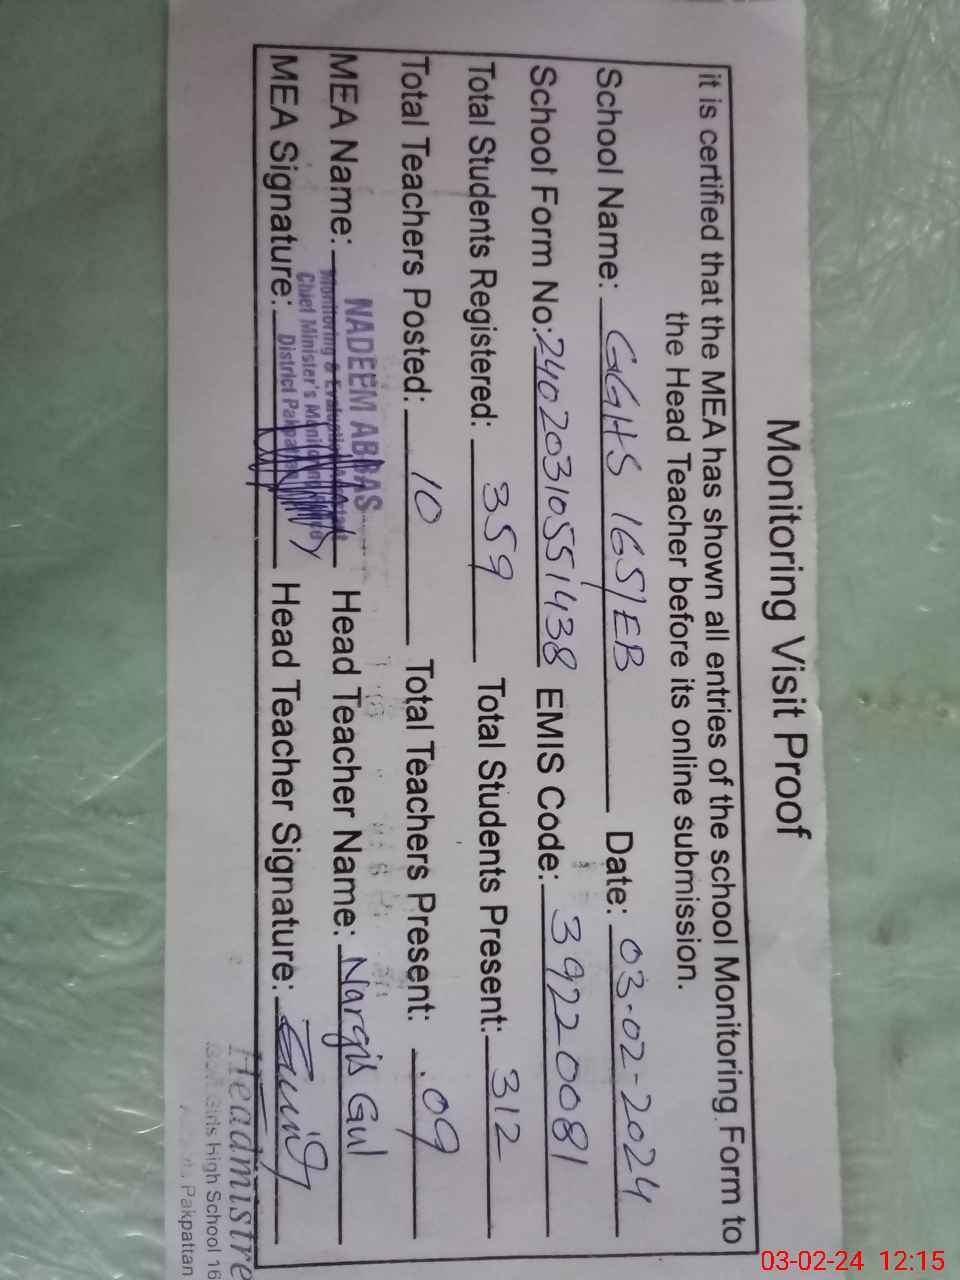 Monitoring Visit Proof
it is certified that the MEA has shown all entries of the school Monitoring Form to
the Head Teacher before its online submission.
School Name: GGHS 165/EB Date: 03-02-2024
School Form No: 24020310551438 EMIS Code: 39220081
Total Students Registered: 359 Total Students Present: 312
Total Teachers Posted: 10 Total Teachers Present: 09
NADEEM ABBAS
MEA Name: Head Teacher Name: Nargis Gul
Monitoring & Evaluation
Chief Minister's
District Pakpattan
MEA Signature: Head Teacher Signature:
Headmistre
Girls High School 16
Pakpattan
03-02-24 12:15